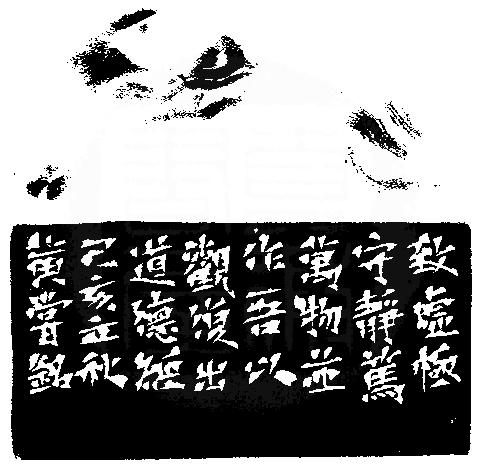 致虛極
守靜篤
萬物並
作吾以
觀復出
道德經
己亥立秋
黃嘗銘